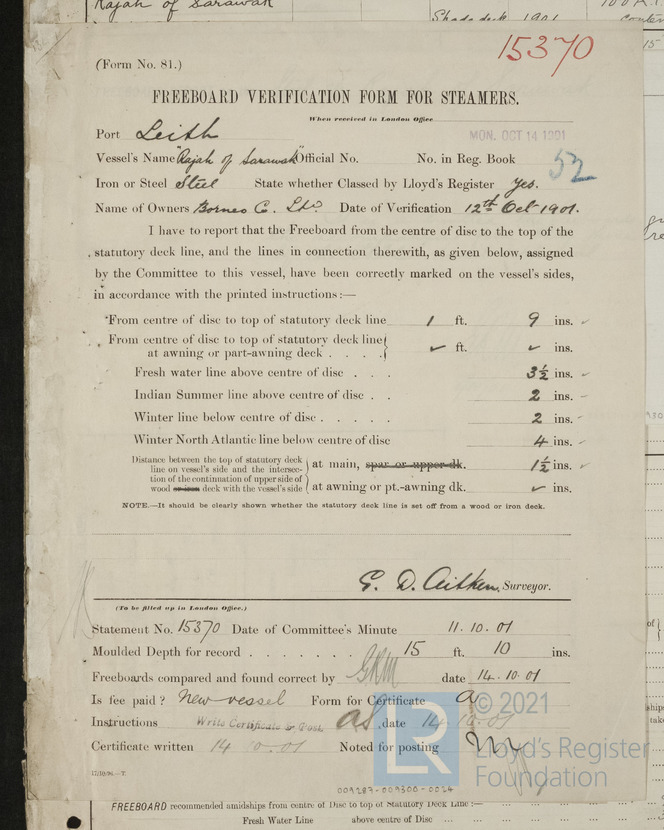 Rajah of Sarawak
Shade deck 1901
15370
(Form No. 81.)
FREEBOARD VERIFICATION FORM FOR STEAMERS.
When received in London Office
Port Leith MON. OCT 14 1901
Vessel's Name "Rajah of Sarawak" Official No. No. in Reg. Book 52
Iron or Steel Steel State whether Classed by Lloyd's Register Yes.
Name of Owners Borneo C. Ltd. Date of Verification 12th Oct 1901.
I have to report that the Freeboard from the centre of disc to the top of the
statutory deck line, and the lines in connection therewith, as given below, assigned
by the Committee to this vessel, have been correctly marked on the vessel's sides,
in accordance with the printed instructions:—
From centre of disc to top of statutory deck line 1 ft. 9 ins.
From centre of disc to top of statutory deck line
at awning or part-awning deck . . . . ✓ ft. ✓ ins.
Fresh water line above centre of disc . . . 3½ ins.
Indian Summer line above centre of disc . . 2 ins.
Winter line below centre of disc . . . . . 2 ins.
Winter North Atlantic line below centre of disc 4 ins.
Distance between the top of statutory deck
line on vessel's side and the intersec- at main, spar or upper dk. 1½ ins.
tion of the continuation of upper side of
wood or iron deck with the vessel's side at awning or pt.-awning dk. ✓ ins.
NOTE.—It should be clearly shown whether the statutory deck line is set off from a wood or iron deck.
G. D. Aitken, Surveyor.
(To be filled up in London Office.)
Statement No. 15370 Date of Committee's Minute 11.10.01
Moulded Depth for record . . . . . . . 15 ft. 10 ins.
Freeboards compared and found correct by GRM date 14.10.01
Is fee paid? New vessel Form for Certificate a
Instructions Write Certificate & Post. date 14.10.01
Certificate written 14 10.01 Noted for posting
12/10/96.—T.
LR © 2021
Lloyd's Register
Foundation
009287-009300-0024
FREEBOARD recommended amidships from centre of Disc to top of Statutory Deck Line:—
Fresh Water Line above centre of Disc